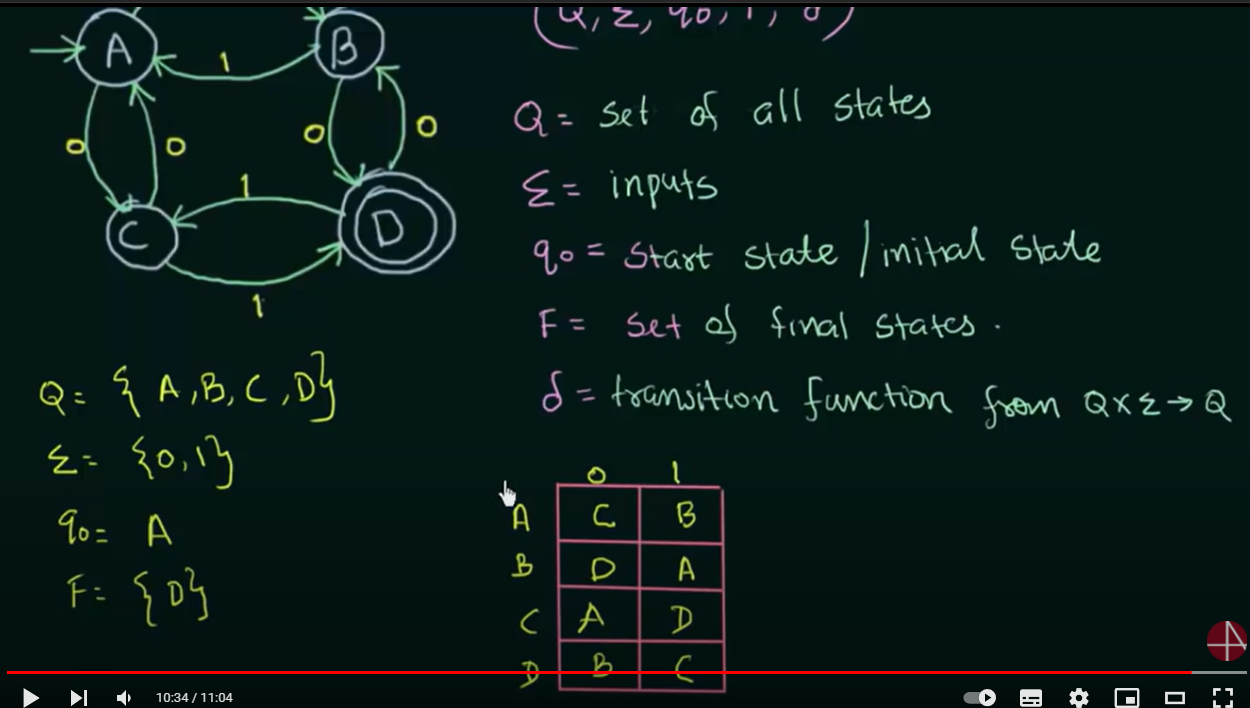 (Q, Σ, q0, F, δ)
A
B
1
0
0
0
0
1
C
D
1
Q = set of all states
Σ = inputs
q0 = Start state / initial state
F = set of final states.
δ = transition function from Q x Σ → Q
Q = { A, B, C, D}
Σ = {0, 1}
q0 = A
F = { D}
0 1
A C B
B D A
C A D
D B C
10:34 / 11:04